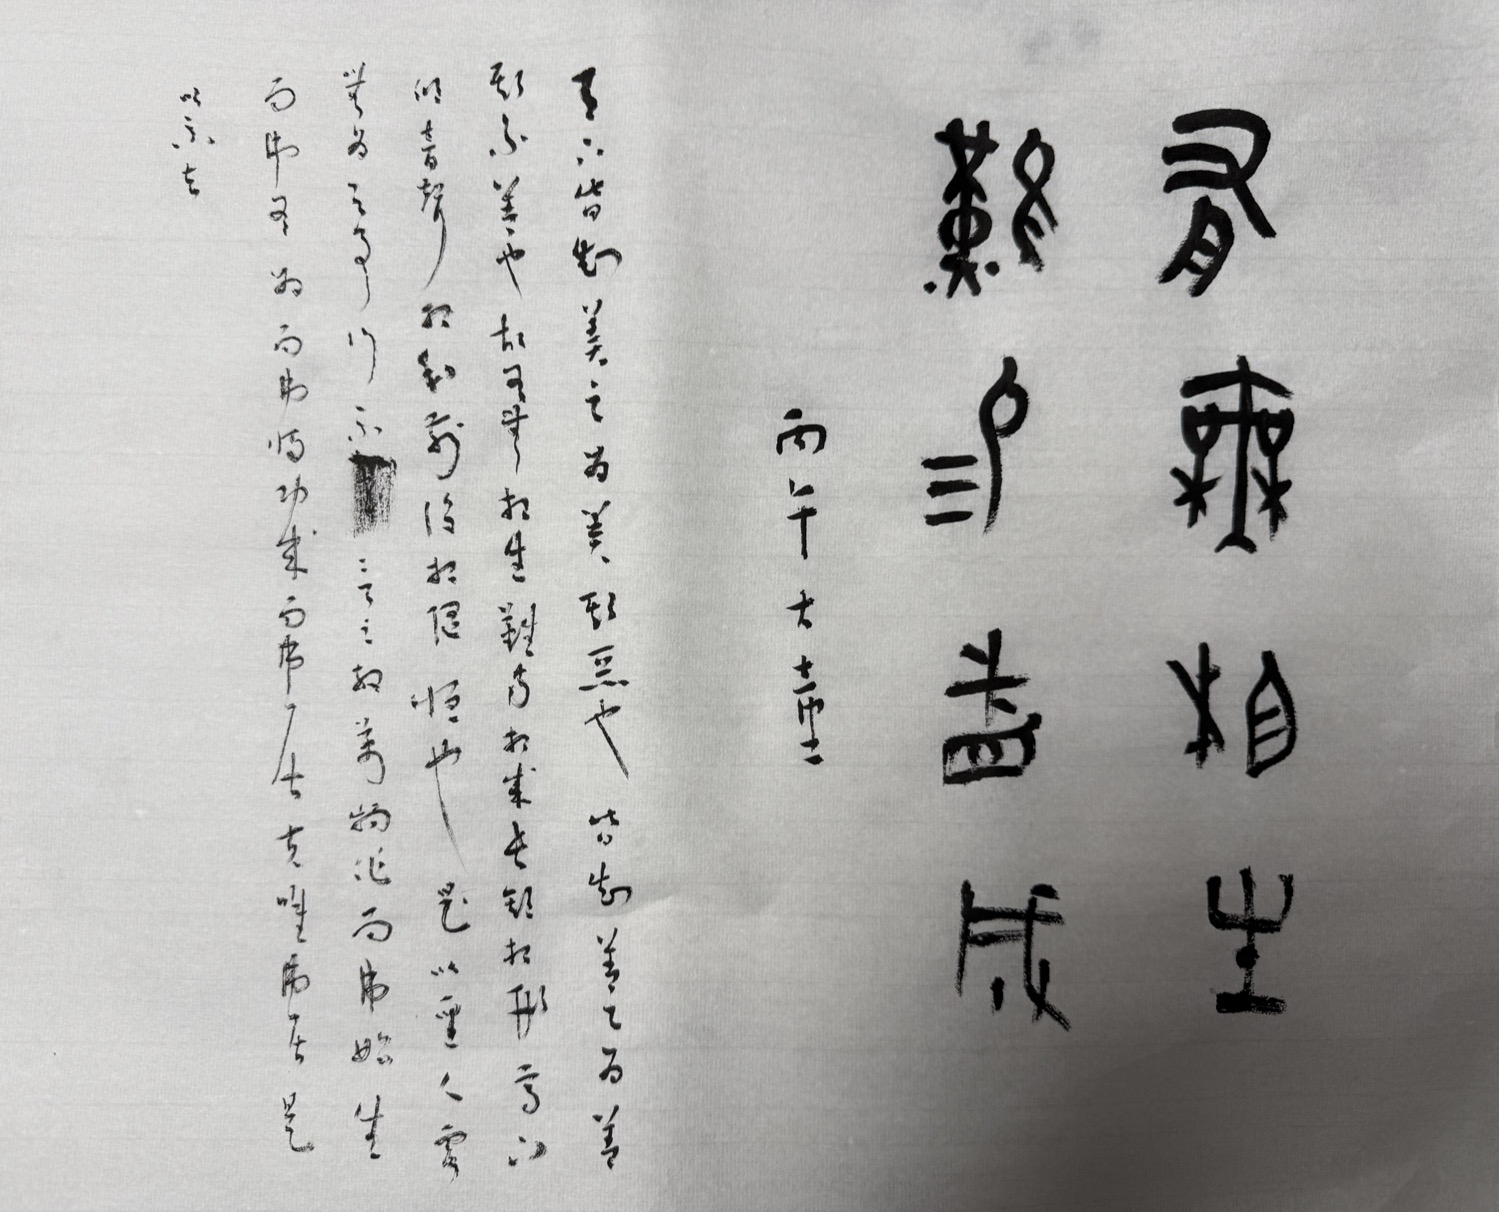 有無相生
難易成
丙午大壺
天下皆知美之为美斯惡也皆知善之为善
斯不善也故有無相生難易相成長短相形高下
傾音聲相和前後相隨恒也是以聖人處
無为之事行不言之教萬物作而弗始生
而弗有为而弗恃功成而弗居夫唯弗居是
以不去